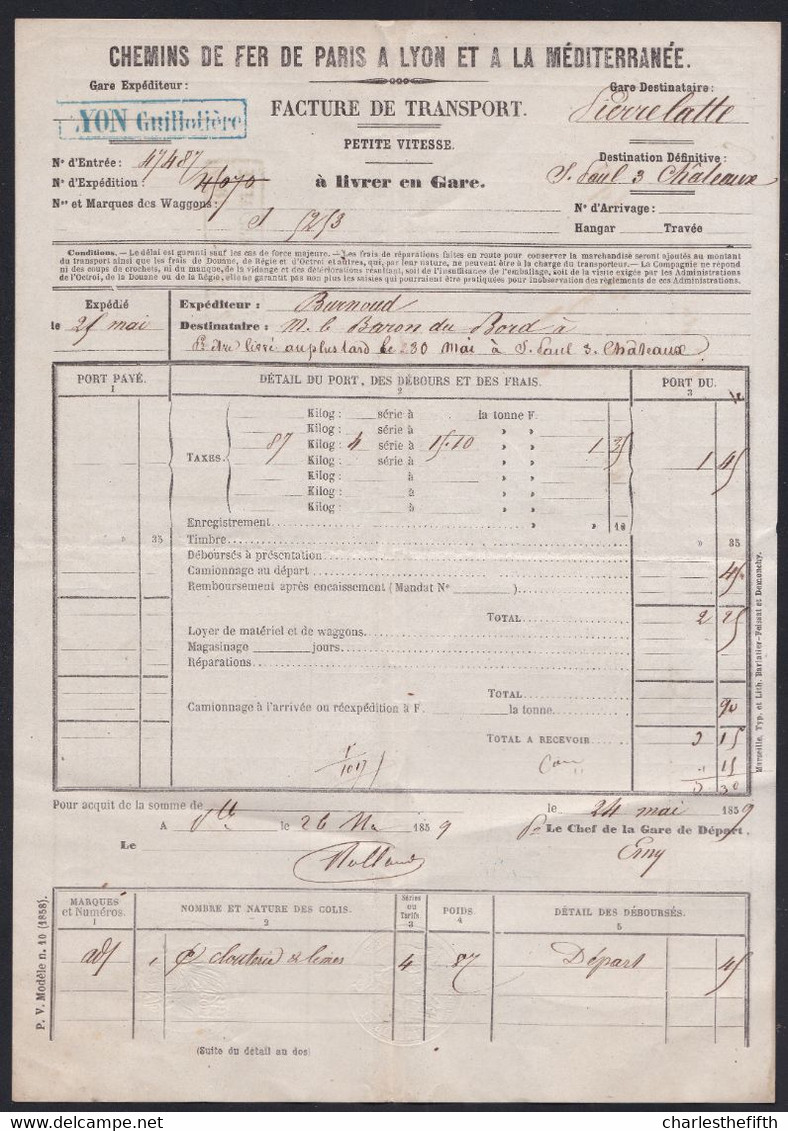 CHEMINS DE FER DE PARIS A LYON ET A LA MÉDITERRANÉE.
Gare Expéditeur :
LYON Guillotière
FACTURE DE TRANSPORT.
PETITE VITESSE.
à livrer en Gare.
Gare Destinataire :
Pierrelatte
Destination Définitive :
S. Paul 3 Châteaux
N° d'Entrée : 47487
N° d'Expédition : 45070
Nos et Marques des Waggons :
N° d'Arrivage :
Hangar Travée
Conditions. — Le délai est garanti sauf les cas de force majeure. — Les frais de réparations faites en route pour conserver la marchandise seront ajoutés au montant
du transport ainsi que les frais de Douane, de Régie et d'Octroi et autres, qui, par leur nature, ne peuvent être à la charge du transporteur. — La Compagnie ne répond
ni des coups de crochets, ni du manque, de la vidange et des détériorations résultant, soit de l'insuffisance de l'emballage, soit de la visite exigée par les Administrations
de l'Octroi, de la Douane ou de la Régie, elle ne garantit pas non plus les saisies qui pourraient être pratiquées pour inobservation des règlements de ces Administrations.
Expédié
le 25 mai
Expéditeur : Burnoud
Destinataire : M. le Baron du Bord à
livré au plus tard le 30 mai à S. Paul 3. Châteaux
PORT PAYÉ.
1
DÉTAIL DU PORT, DES DÉBOURS ET DES FRAIS.
2
PORT DU.
3
Kilog : série à la tonne F.
Kilog : série à » »
TAXES. 87 Kilog : 4 série à 15.10 » » 1 35
Kilog : série à » » 1 45
Kilog : à » »
Kilog : à » »
Kilog : à » »
Enregistrement » » 10
» 35 Timbre » 35
Déboursés à présentation
Camionnage au départ 45
Remboursement après encaissement (Mandat N° )
TOTAL 2 25
Loyer de matériel et de waggons.
Magasinage jours.
Réparations
TOTAL
Camionnage à l'arrivée ou réexpédition à F. la tonne. 90
TOTAL A RECEVOIR 3 15
15
3 30
Marseille, Typ. et Lith. Barlatier-Feissat et Demonchy.
Pour acquit de la somme de
A le 26 1859
Le
le 24 mai 1859
Le Chef de la Gare de Départ.
MARQUES et Numéros.
1
NOMBRE ET NATURE DES COLIS.
2
Séries ou Tarifs
3
POIDS.
4
DÉTAIL DES DÉBOURSÉS.
5
1 clouterie & limes 4 87 Départ 45
(Suite du détail au dos)
P. V. Modèle n. 10 (1858).
charlesthefifth